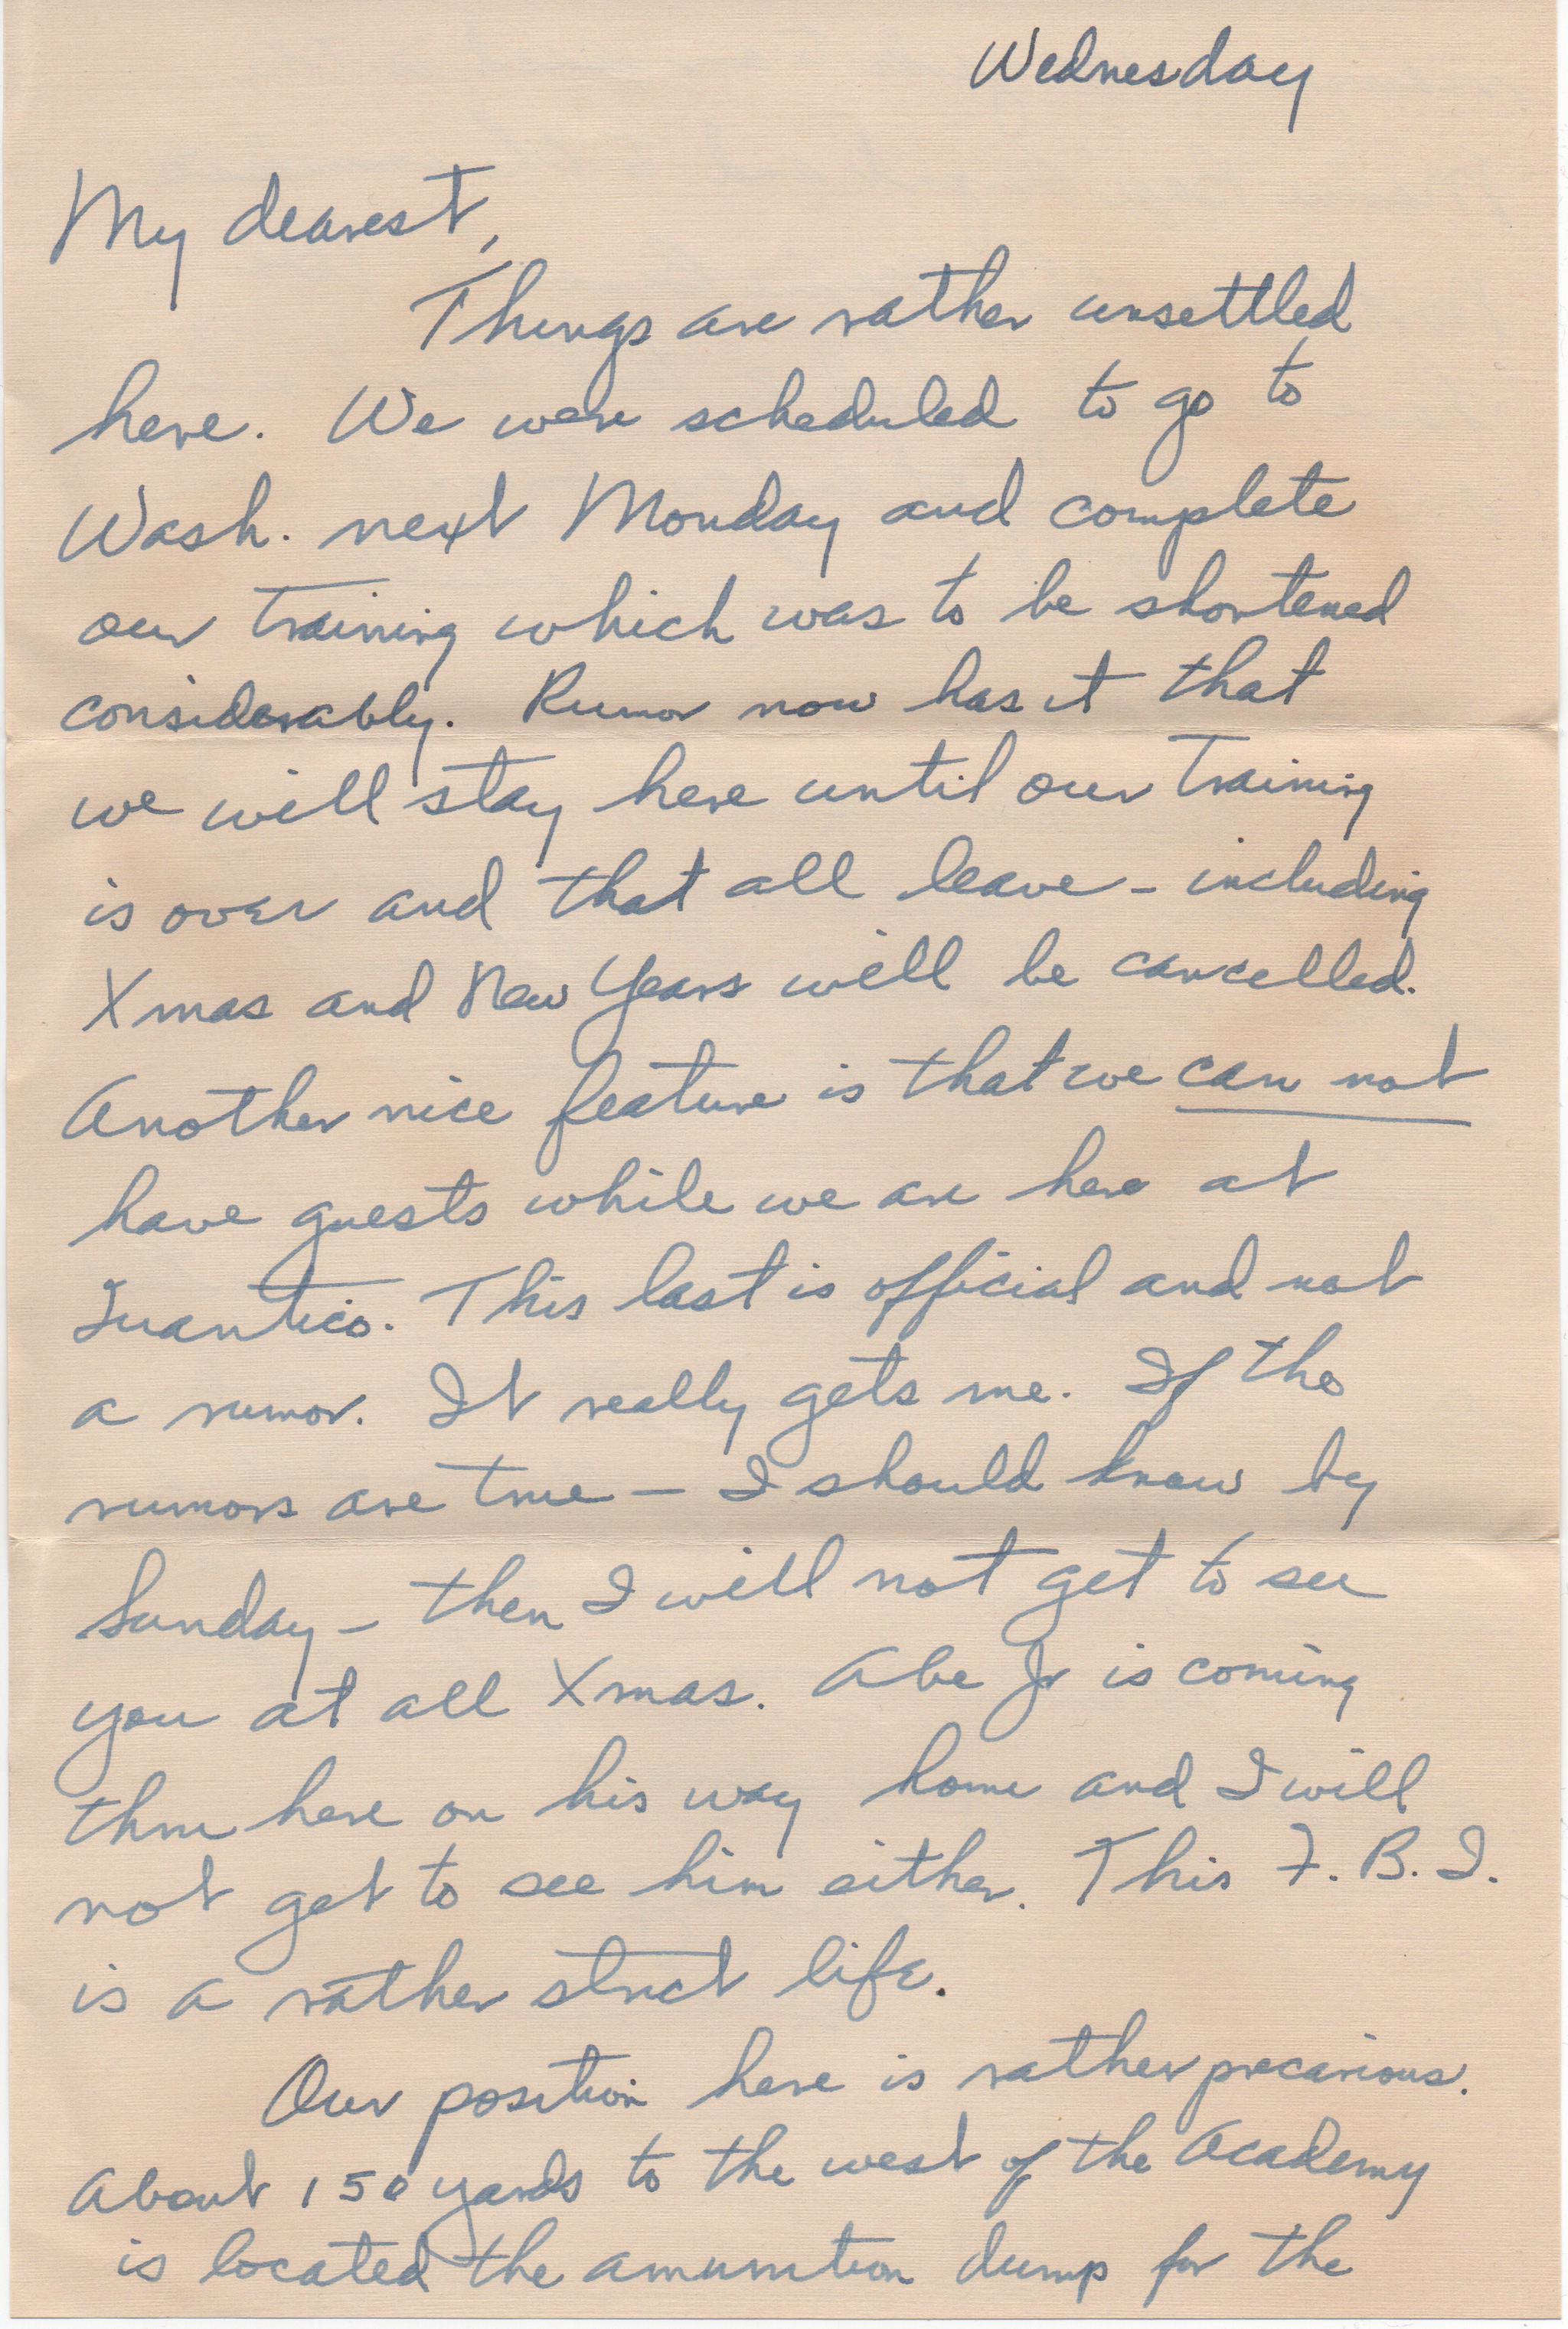 Wednesday
My dearest,
Things are rather unsettled
here. We were scheduled to go to
Wash. next Monday and complete
our training which was to be shortened
considerably. Rumor now has it that
we will stay here until our training
is over and that all leave - including
Xmas and New Years will be cancelled.
Another nice feature is that we can not
have guests while we are here at
Quantico. This last is official and not
a rumor. It really gets me. If the
rumors are true - I should know by
Sunday - then I will not get to see
you at all Xmas. Abe Jr is coming
thru here on his way home and I will
not get to see him either. This F. B. I.
is a rather strict life.
Our position here is rather precarious.
About 150 yards to the west of the Academy
is located the amunition dump for the